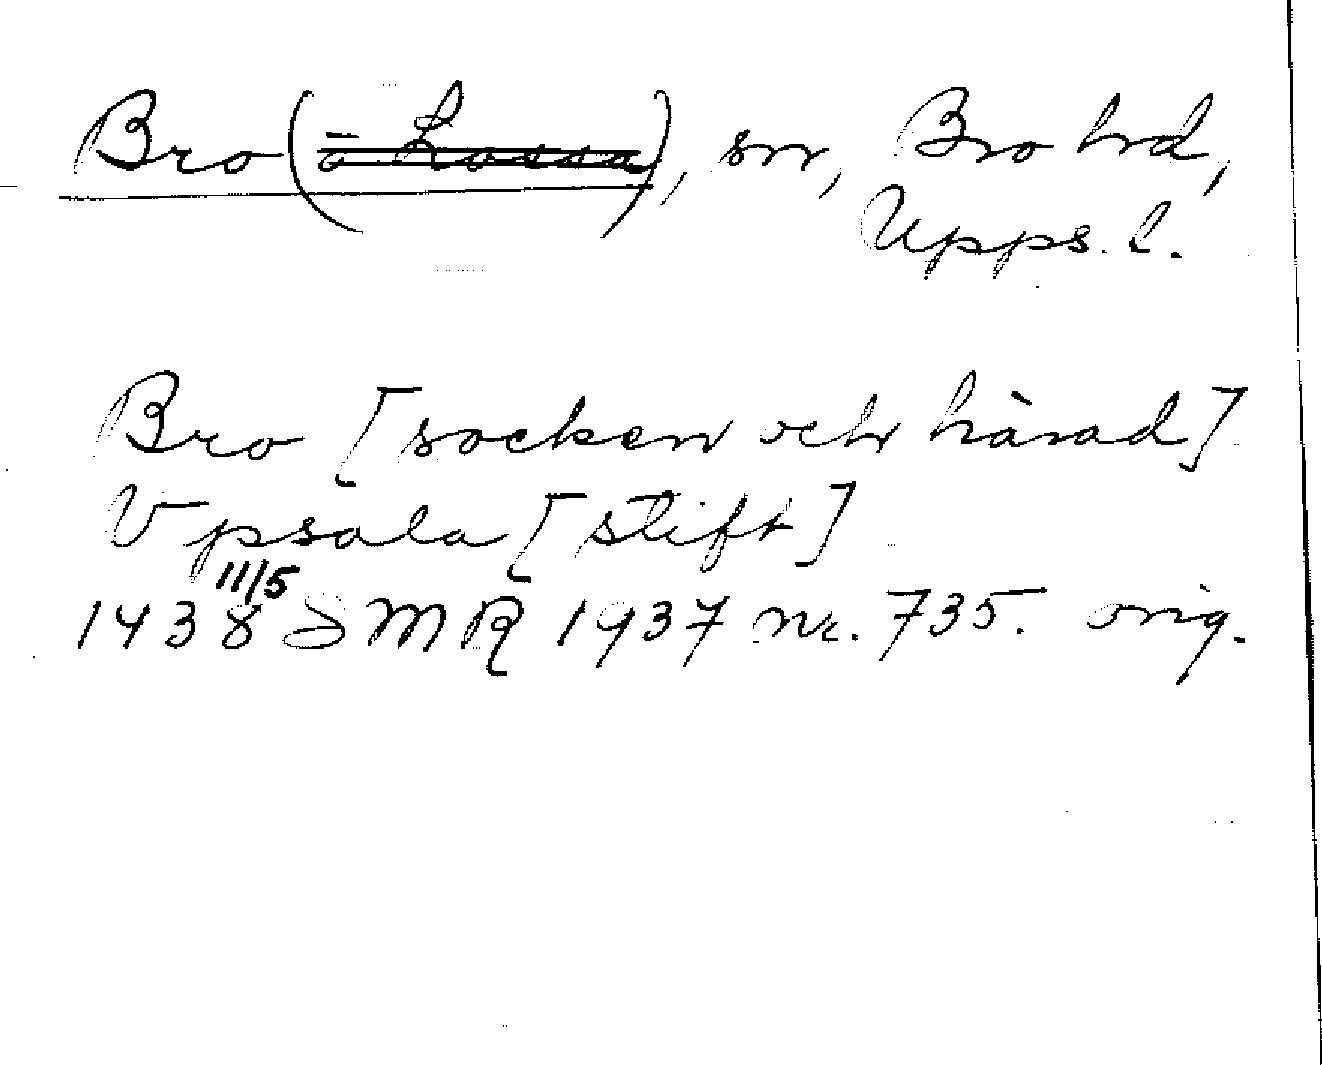 Bro (o Lossa), sn, Bro hd,
Upps. l.
Bro [socken och härad]
Vpsala [stift]
11/5
1438 DMR 1937 nr. 735. orig.